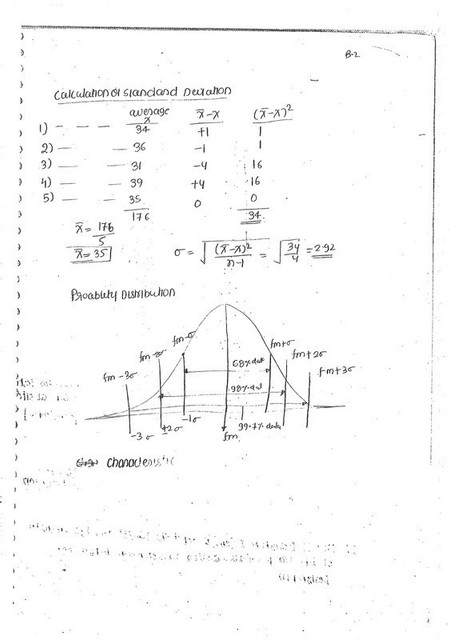 B-2
Calculation of standard Deviation
average x̄-x (x̄-x)²
x
1) — — — 34 +1 1
2) — — 36 -1 1
3) — — 31 -4 16
4) — — 39 +4 16
5) — — 35 0 0
176 34
x̄ = 176/5
x̄ = 35
σ = √(x̄-x)²/n-1 = √34/4 = 2.92
Proabluty Distribution
fm-σ fm+σ
fm-2σ fm+2σ
fm-3σ fm+3σ
68% data
98% dat
99.7% data
-3σ ±2σ -1σ fm
characteristic